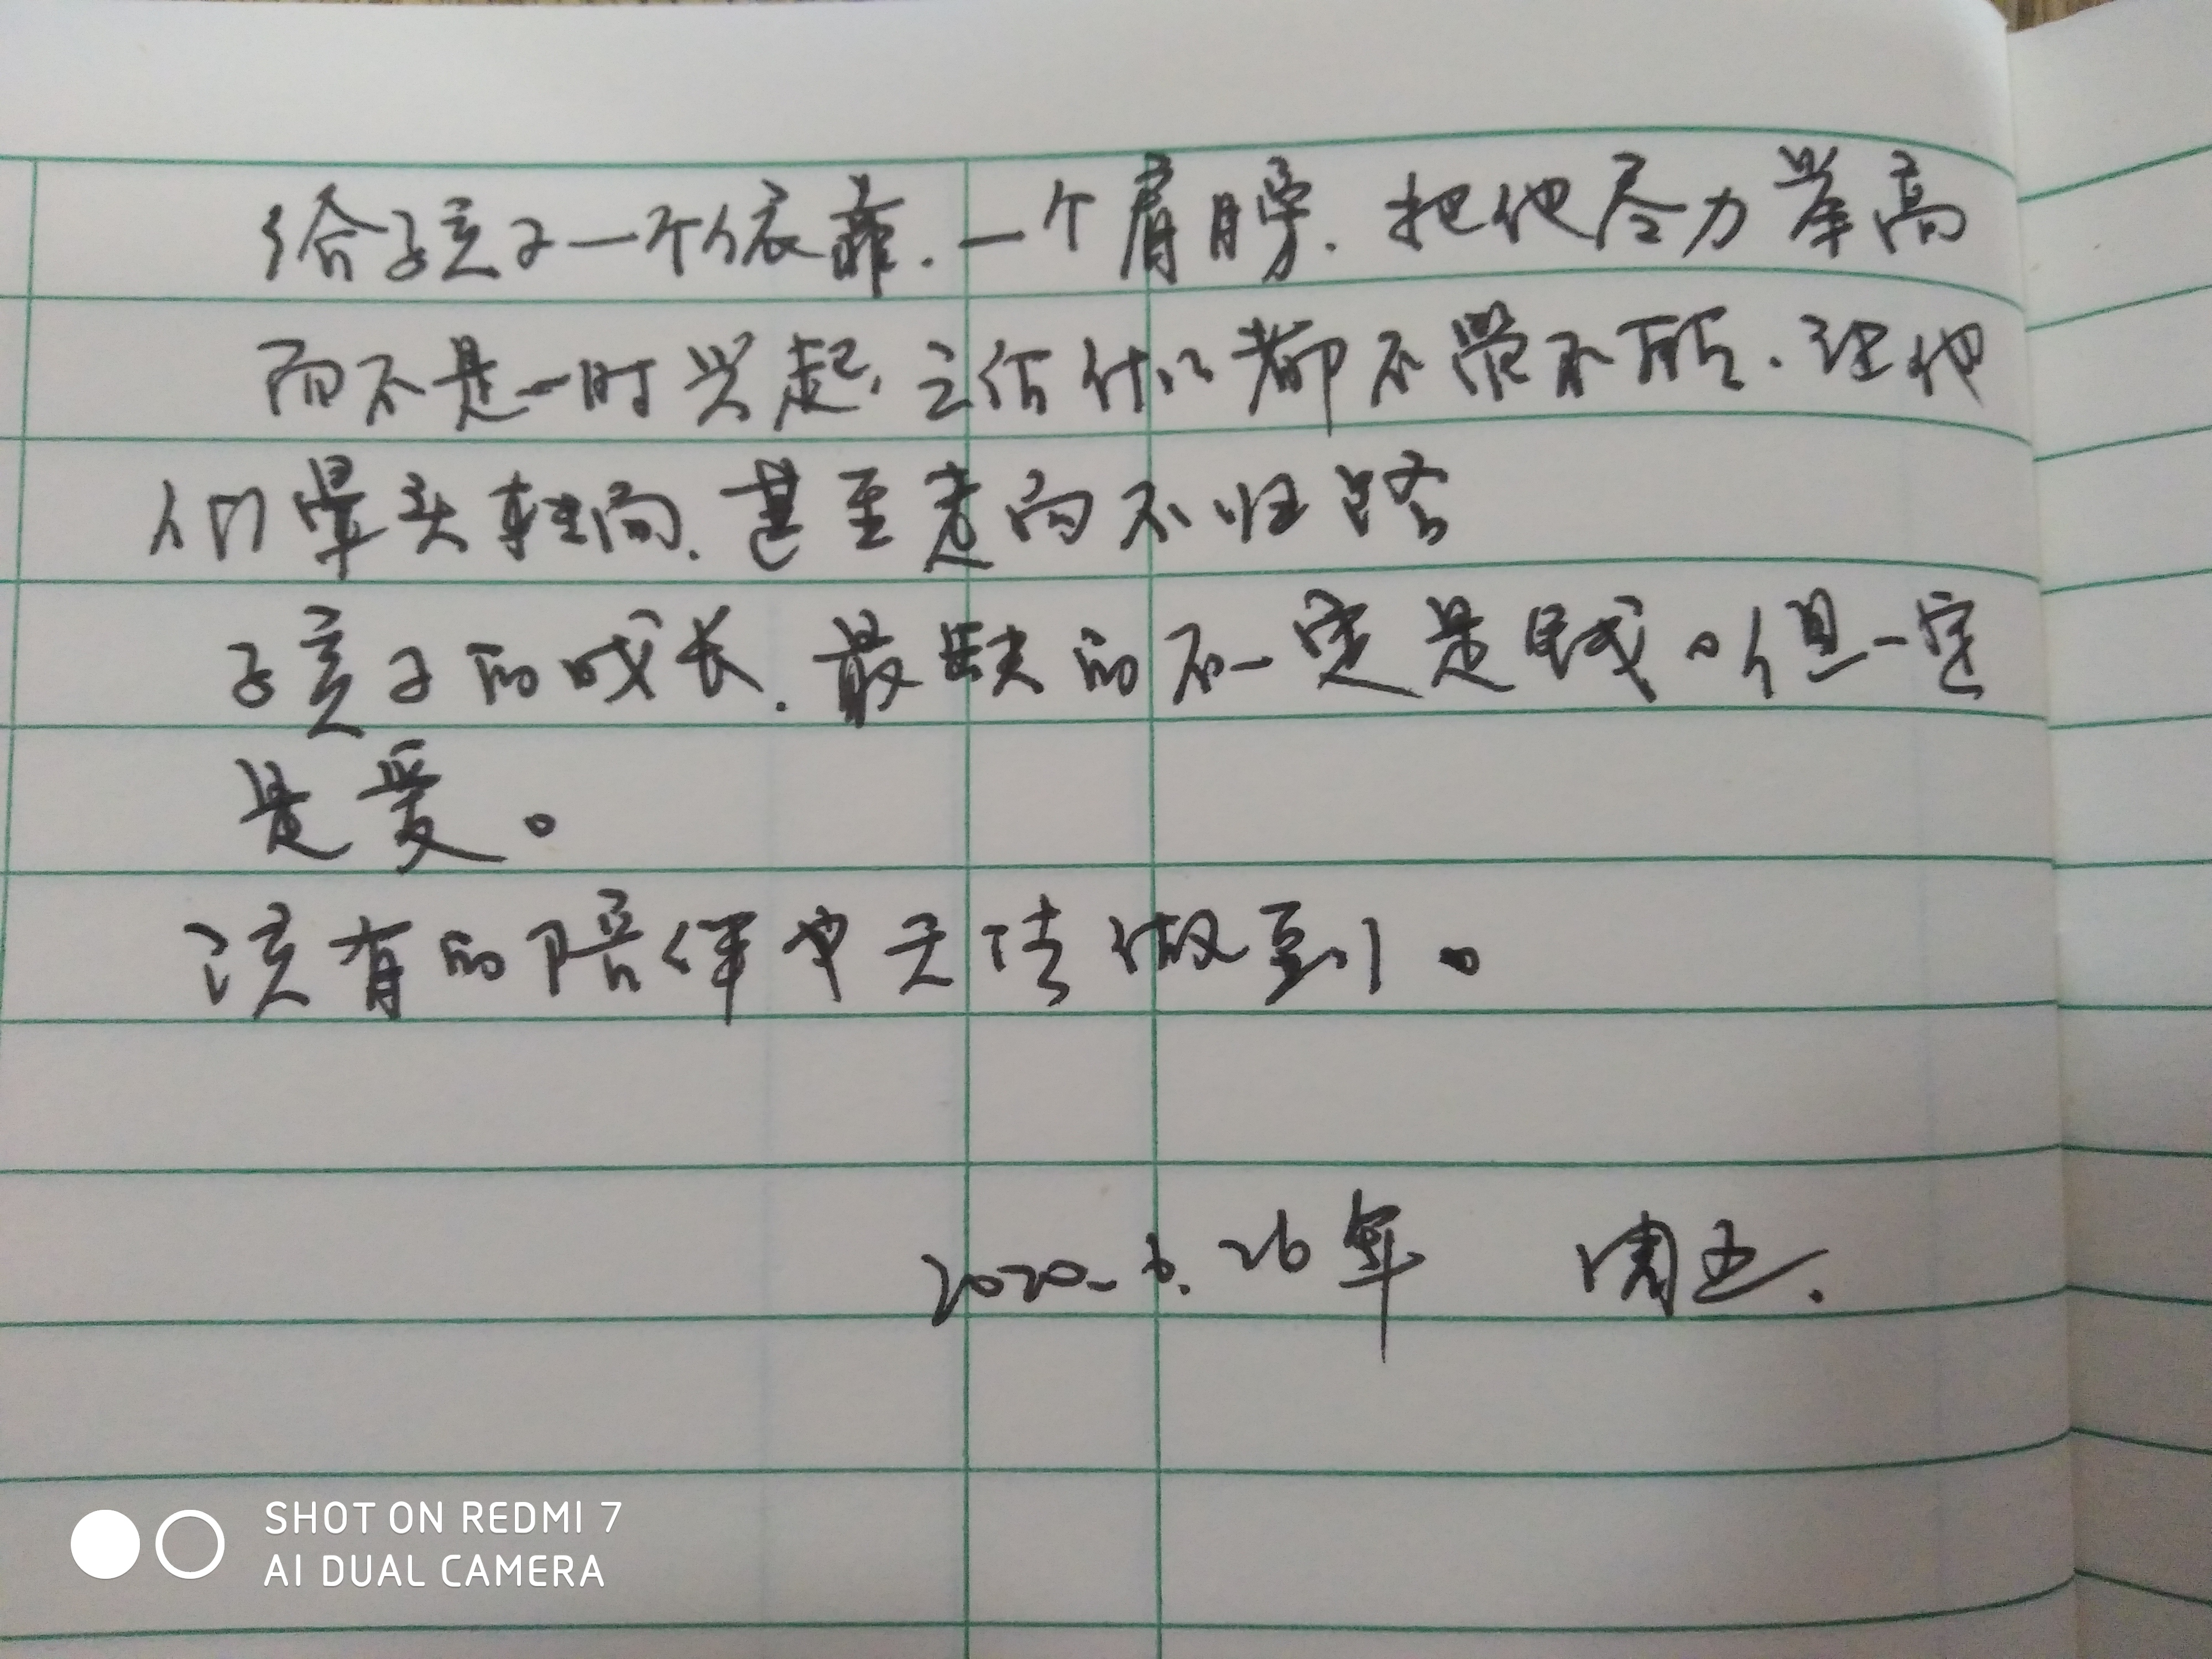 给孩子一个依靠.一个肩膀.把他尽力举高
而不是一时兴起,之后什么都不管不顾.让他
们晕头转向.甚至走向不归路
孩子的成长.最缺的不一定是钱。但一定
是爱。
该有的陪伴也无法做到。
2020.6.26年 周五.
SHOT ON REDMI 7
AI DUAL CAMERA